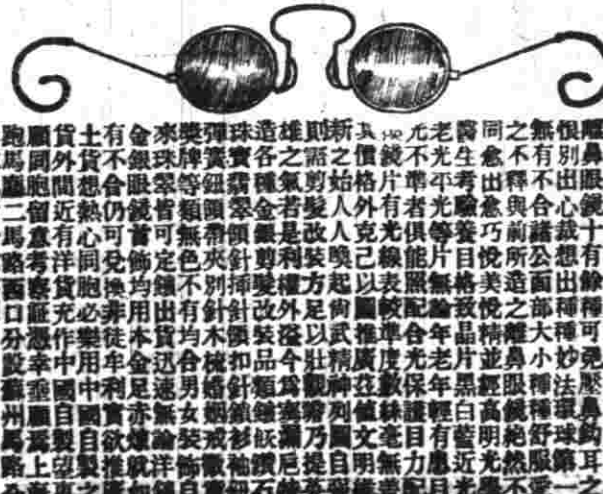 離鼻眼鏡十有餘種可免壓鼻鈎耳之
恨別出心裁想出種種妙法環球第一
無有不合諸公面部大小種種舒服
之不釋與前所造之離鼻眼鏡絕然不
同愈出愈巧悅美悅精並經高明光學
醫生考驗養目格致晶片黑白藍近光
老光平光等片無論年老年輕有患目
光不準者俱能照配合光保護目力配
鏡片有光線表較準度數絲毫無
其價格外克己以圖推廣茲値文明維
新之始人人喚起尚武精神列圖自强
則需剪髮改裝方足以壯觀瞻乃提英
雄之氣若是利權外溢今爲塞漏巵特
造各種金銀剪髮改裝品類鏈鑽石
珠寶翡翠領針揷針頭扣針鎖衫袖鈕
彈簧鈕頭帶夾別針木梳婚姻戒徽
獎牌等類無色不有均合男女裝飾自
來珠鏡皆可定鑄出貨迅速無論洋
金銀眼鏡首飾均用本金足赤煉就如
有不合仍可兌換非徒牟利實欲推
土貨想熱心同胞必樂用中國自製之
貨外間近有洋貨充作中國自製望
願同胞留意考察証憑幸垂顧爲上
跑馬廳二馬路西口分設蘇州馬路